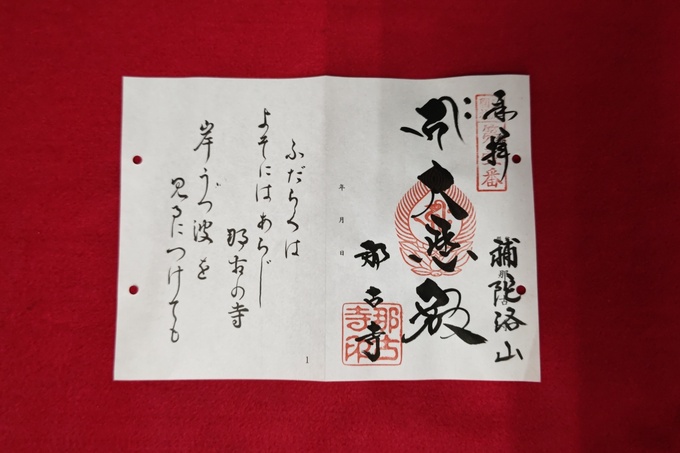 奉拝
補陀洛山
大悲殿
那古寺
那古寺印
年 月 日
ふだらくは
よそにはあらじ
那古の寺
岸うつ波を
見るにつけても
1